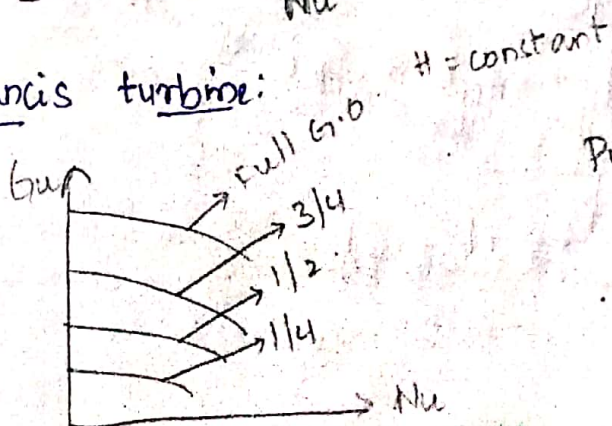 Nu
ncis turbine:
H = constant
Gu
Full G.O
3/4
1/2
1/4
Nu